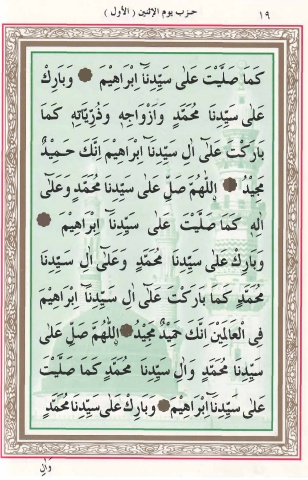 ١٩ حزب يوم الإثنين ( الأول )
كَمَا صَلَّيْتَ عَلٰى سَيِّدِنَا اِبْرَاهِيمَ ۞ وَبَارِكْ
عَلٰى سَيِّدِنَا مُحَمَّدٍ وَاَزْوَاجِهِ وَذُرِّيَّاتِهِ كَمَا
بَارَكْتَ عَلٰى اٰلِ سَيِّدِنَا اِبْرَاهِيمَ اِنَّكَ حَمِيدٌ
مَجِيدٌ ۞ اَللّٰهُمَّ صَلِّ عَلٰى سَيِّدِنَا مُحَمَّدٍ وَعَلٰى
اٰلِهِ كَمَا صَلَّيْتَ عَلٰى سَيِّدِنَا اِبْرَاهِيمَ ۞
وَبَارِكْ عَلٰى سَيِّدِنَا مُحَمَّدٍ وَعَلٰى اٰلِ سَيِّدِنَا
مُحَمَّدٍ كَمَا بَارَكْتَ عَلٰى اٰلِ سَيِّدِنَا اِبْرَاهِيمَ
فِى الْعَالَمِينَ اِنَّكَ حَمِيدٌ مَجِيدٌ ۞ اَللّٰهُمَّ صَلِّ عَلٰى
سَيِّدِنَا مُحَمَّدٍ وَاٰلِ سَيِّدِنَا مُحَمَّدٍ كَمَا صَلَّيْتَ
عَلٰى سَيِّدِنَا اِبْرَاهِيمَ ۞ وَبَارِكْ عَلٰى سَيِّدِنَا مُحَمَّدٍ
وَاٰلِ